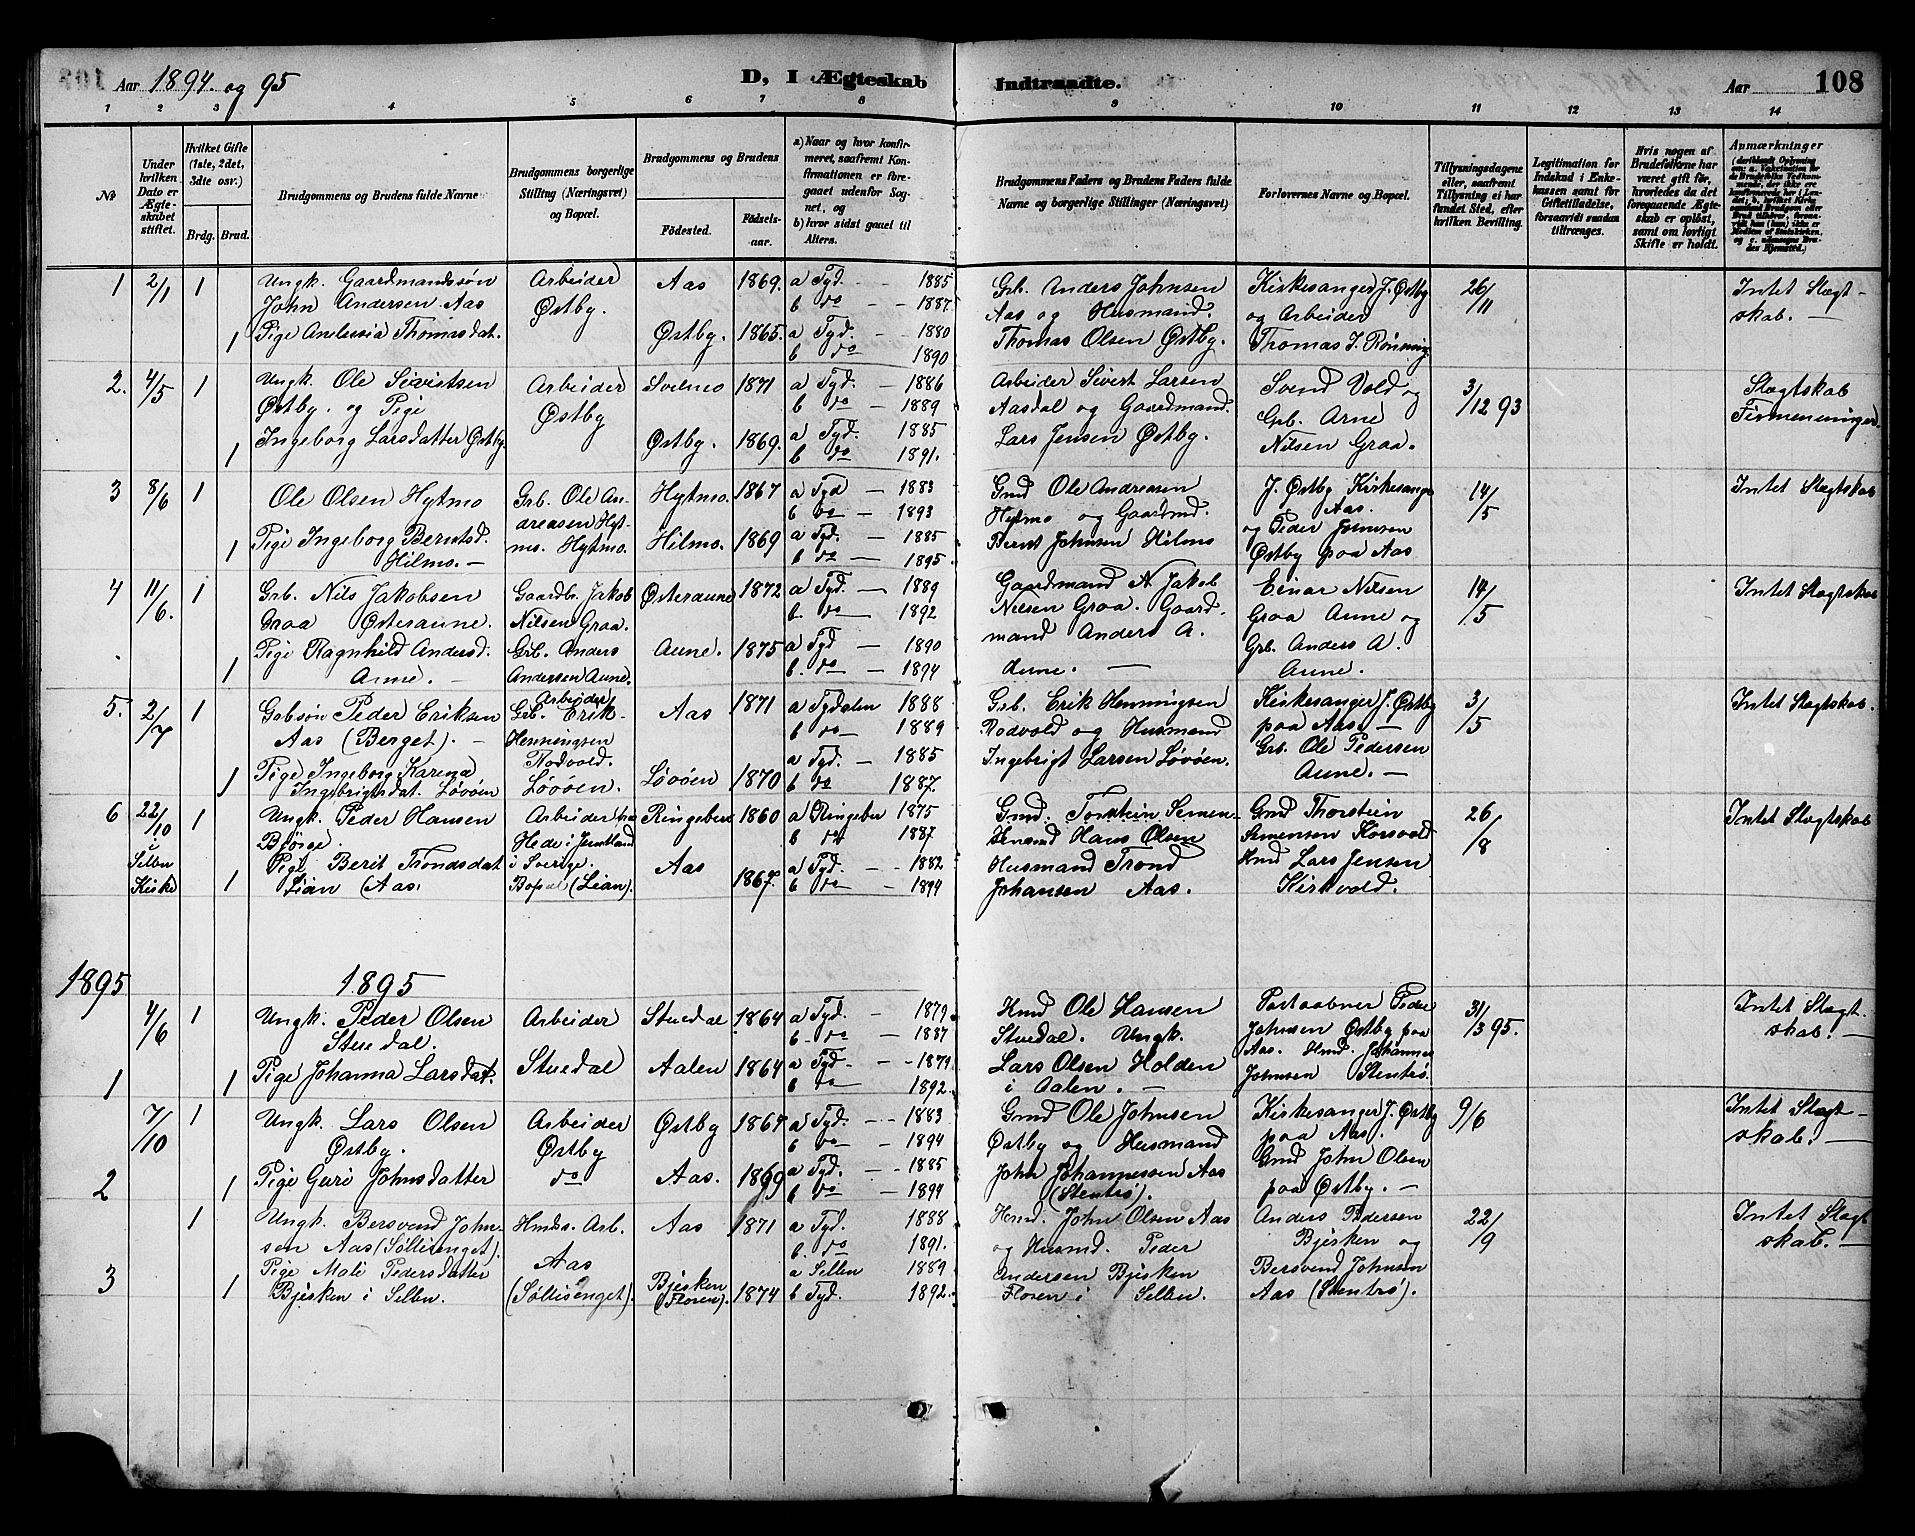 Aar 1894. og 95
D, I Ægteskab Indtraadte.
Aar 108
1 2 3 4 5 6 7 8 9 10 11 12 13 14
№
Under hvilken Dato er Ægteskabet stiftet.
Hvilket Gifte (1ste, 2det, 3dte osv.)
Brdg. Brud.
Brudgommens og Brudens fulde Navne
Brudgommens borgerlige Stilling (Næringsvei) og Bopæl.
Brudgommens og Brudens
Fødested. Fødselsaar.
a) Naar og hvor konfirmeret, saafremt Konfirmationen er foregaaet udenfor Sognet, og
b) hvor sidst gaaet til Alters.
Brudgommens Faders og Brudens Faders fulde Navne og borgerlige Stillinger (Næringsvei)
Forlovernes Navne og Bopæl.
Tillysningsdagene eller, saafremt Tillysning ei har fundet Sted, efter hvilken Bevilling.
Legitimation for Indskud i Enkekassen samt for Giftetilladelse, forsaavidt saadan tiltrænges.
Hvis nogen af Brudefolkene har været gift før, hvorledes da det foregaaende Ægteskab er opløst, samt om lovligt Skifte er holdt.
Anmærkninger
1 2/1 1 Ungk. Gaardmandssøn Arbeider Aas 1869. a Tyd. - 1885 Grb. Anders Johnsen Kirkesanger J. Østby 26/11 Intet Slægt-
John Andersen Aas Østby. b do - 1887. Aas og Husmand. og Arbeider skab. —
1 Pige Anelusia Thomasdat. Østby. 1865. a Tyd. - 1880 Thomas Olsen Østby. Thomas J. Rønning
b do 1890
2. 4/5 1 Ungk. Ole Sivertsen Arbeider Svelmo 1871 a Tyd. - 1886 Arbeider Sivert Larsen Svend Vold og 3/12 93 Slægtskab
Østby. og Pige Østby b do - 1889 Aasdal og Gaardmand. Grb. Arne Firmenninger
1 Ingeborg Larsdatter Østby. Østby. 1869. a Tyd. - 1885 Lars Jensen Østby. Nilsen Graa.
b do - 1891.
3 8/6 1 Ole Olsen Hytmo Grb. Ole An- Hytmo. 1867 a Tyd - 1883 Gmd Ole Andreasen J. Østby Kirkesange 14/5 Intet Slægtskab
dreasen Hyt- b do - 1893 Hytmo og Gaardmd. Aas.
1 Pige Ingeborg Berntsd. mo. Hytmo. Hilmo. 1869 a Tyd. - 1885 Bernt Johnsen Hilmo og Peder Johnsen
Hilmo. — b do - 1895. Østby paa Aas
4 11/6. 1 Grb. Nils Jakobsen Gaardbr. Jakob Østeraune 1872 a Tyd. - 1889 Gaardmand N Jakob Einar Nilsen 14/5 Intet Slægtskab
Graa Østeraune. Nilsen Graa. b. do - 1892 Nilsen Graa. Gaard- Graa Aune og
1 Pige Ragnhild Andersd. Grb. Anders Aune. 1875 a Tyd - 1890 mand Anders A. Grb. Anders A.
Aune. — Andersen Aune. b. do - 1894 Aune. — Aune.
5. 2/7 1 Gbsøn Peder Eriksen Arbeider Grb. Erik Aas 1871 a Tydalen 1888 Grb. Erik Henningsen Kirkesanger J. Østby 3/5 Intet Slægtskab.
Aas (Berget). — Henningsen Rodvold. b do - 1889 Rodvold og Husmand paa Aas. —
1 Pige Ingeborg Karina Løvøen. Løvøen 1870 a Tyd. - 1885 Ingebrigt Larsen Løvøen. Grb. Ole Pedersen
Ingebrigtsdat. Løvøen b do - 1887. Aune. —
6 22/10 1 Ungk. Peder Hansen Arbeider fra Ringeber 1860 a Ringeber 1875 Gmd. Torstein Semen- Gmd Thorstein 26/8 Intet Slægtskab
i Selbu Kirke Bjørge. Hede i Jemtland b do 1887 Hans Olsen Semenson Korsvold
1 Pige Berit Trondsdat i Sverige. Aas 1867. a Tyd. - 1882 Husmand Trond Hmd Lars Jensen
Lian (Aas. Bopæl (Lian). b do - 1894 Johansen Aas. Kirkvold.
1895 1895
4/6 1 Ungk. Peder Olsen Arbeider Stuedal 1864 a Tyd. - 1879 Hmd Ole Hansen Postaabner Peder 31/3 95. Intet Slægt-
Stuedal. b. do - 1887 Stuedal. Ungk. Johnsen Østby paa skab. —
1 1 Pige Johanna Larsdat. Stuedal Aalen 1864 a Tyd. - 1879 Lars Olsen Holden Aas. Hmd. Johannes
b do 1892. i Aalen. — Johnsen Stentrø.
7/10 1 Ungk. Lars Olsen Arbeider Østby 1867 a Tyd. - 1883 Gmd Ole Johnsen Kirkesanger J. Østby 9/6 Intet Slægt-
Østby. Østby b do - 1894 Østby og Husmand paa Aas. skab. —
2 1 Pige Guri Johnsdatter do Aas. 1869 a Tyd. - 1885 John Johannessen Aas Gmd John Olsen
b. do - 1894 (Stentrø). paa Østby. —
1 Ungk. Bersvend John- Hmds. Arb. Aas 1871 a Tyd. 1888 Hmd. John Olsen Aas Anders Pedersen 22/9 Intet Slægt-
sen Aas (Søllisenget). Aas b. do 1891. og Husmd. Peder Bjørken og skab. —
3 1 Pige Mali Pedersdatter (Søllisenget). Bjerken (Floren). 1874 a Selbu 1889 Andersen Bjerken Bersvend Johnsen
Bjerken i Selbu. b Tyd. 1892. Floren i Selbu. Aas (Stentrø).